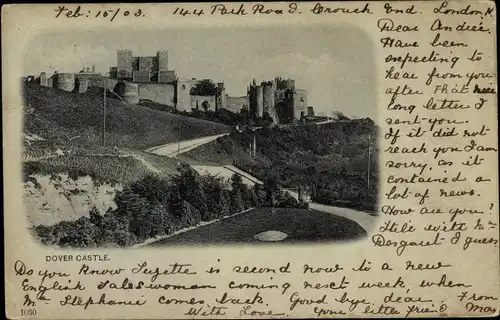 Feb: 15/03. 144 Park Road, Crouch End. London N
Dear Andrée.
Have been
expecting to
hear from you
after that
long letter I
sent you.
If it did not
reach you I am
sorry, as it
contained a
lot of news.
How are you?
Still with Mme
I guess
DOVER CASTLE.
Do you know Suzette is second now to a new
English saleswoman coming next week, when
Mme Stephanie comes back. Good bye dear. From
With Love. you friend Mas
1030